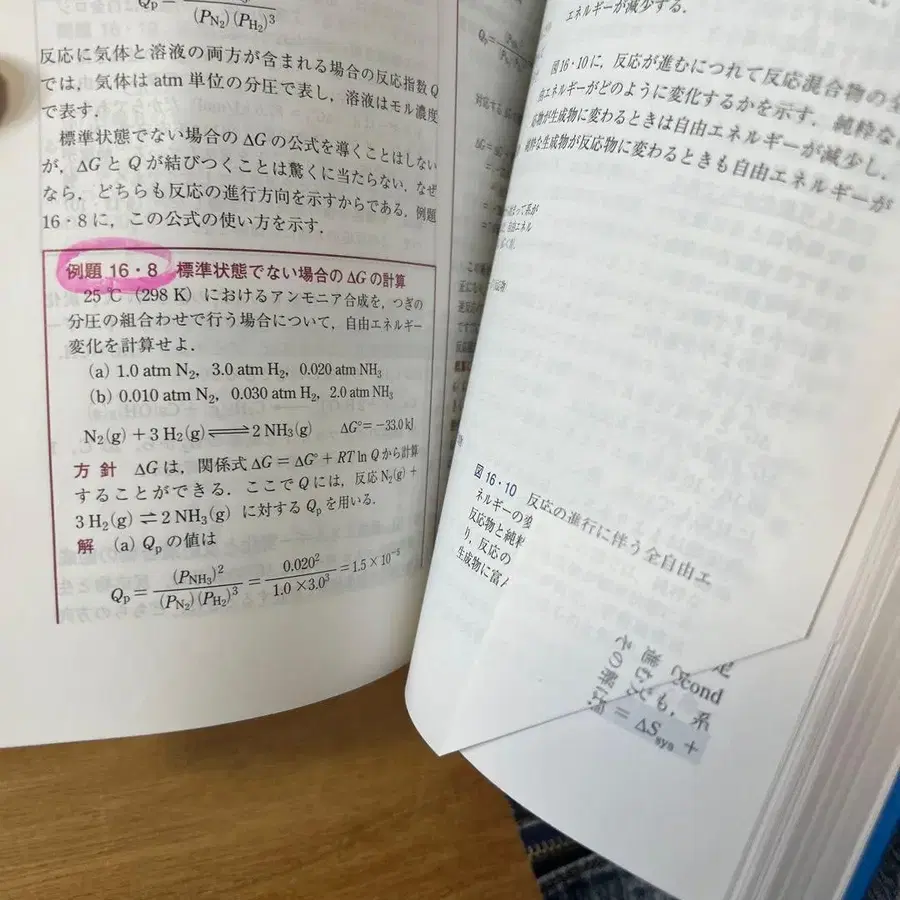 Qp =
(PN₂)(PH₂)³
反応に気体と溶液の両方が含まれる場合の反応指数 Q
では，気体は atm 単位の分圧で表し，溶液はモル濃度
で表す．
標準状態でない場合の ΔG の公式を導くことはしない
が，ΔG と Q が結びつくことは驚くに当たらない．なぜ
なら，どちらも反応の進行方向を示すからである．例題
16・8 に，この公式の使い方を示す．
例題 16・8 標準状態でない場合の ΔG の計算
25 ℃（298 K）におけるアンモニア合成を，つぎの
分圧の組合わせで行う場合について，自由エネルギー
変化を計算せよ．
(a) 1.0 atm N₂，3.0 atm H₂，0.020 atm NH₃
(b) 0.010 atm N₂，0.030 atm H₂，2.0 atm NH₃
N₂(g) + 3 H₂(g) ⇌ 2 NH₃(g) ΔG° = −33.0 kJ
方 針 ΔG は，関係式 ΔG = ΔG° + RT ln Q から計算
することができる．ここで Q には，反応 N₂(g) +
3 H₂(g) ⇌ 2 NH₃(g) に対する Qp を用いる．
解 (a) Qp の値は
Qp = (PNH₃)² / (PN₂)(PH₂)³ = 0.020² / 1.0 × 3.0³ = 1.5 × 10⁻⁵
エネルギーが減少する．
図16・10に，反応が進むにつれて反応混合物の全
由エネルギーがどのように変化するかを示す．純粋な
応物が生成物に変わるときは自由エネルギーが減少し，
純粋な生成物が反応物に変わるときも自由エネルギーが
図 16・10 反応の進行に伴う全自由エ
ネルギーの変
反応物と純粋
り，反応の
生成物に富
cond
も，系
= ΔSsys +